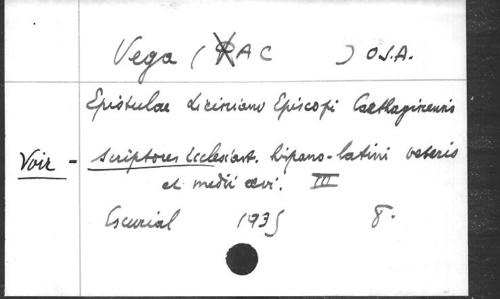 Vega ( AC ) O.S.A.
Epistulae Liciniani Episcopi Carthaginensis
Voir - Scriptores Ecclesiast. hispano-latini veteris
et medii aevi. III
Escurial 1935 8.